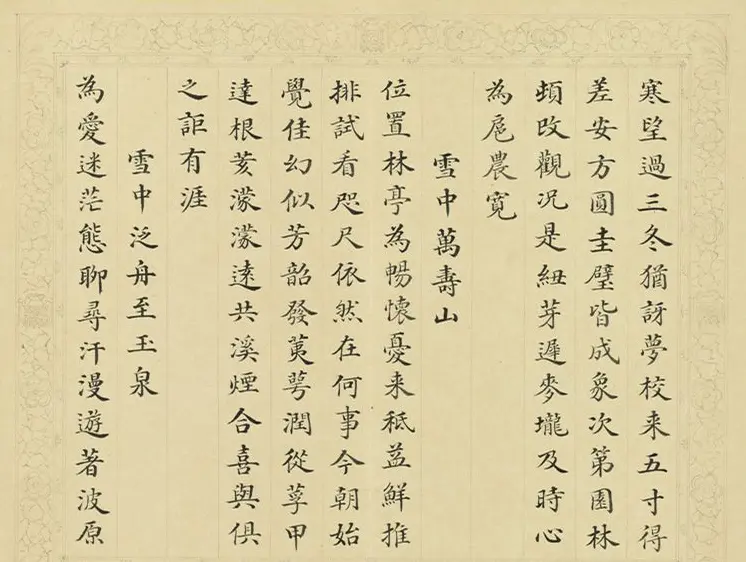 寒望過三冬猶訝夢校来五寸得
差安方圓圭璧皆成象次第園林
頓改觀况是紐芽遲麥壠及時心
為扈農寬
雪中萬壽山
位置林亭為暢懷憂来秪益鮮推
排試看咫尺依然在何事今朝始
覺佳幻似芳韶發荑萼潤從莩甲
達根荄濛濛遠共溪煙合喜與俱
之詎有涯
雪中泛舟至玉泉
為愛迷茫態聊尋汗漫遊著波原